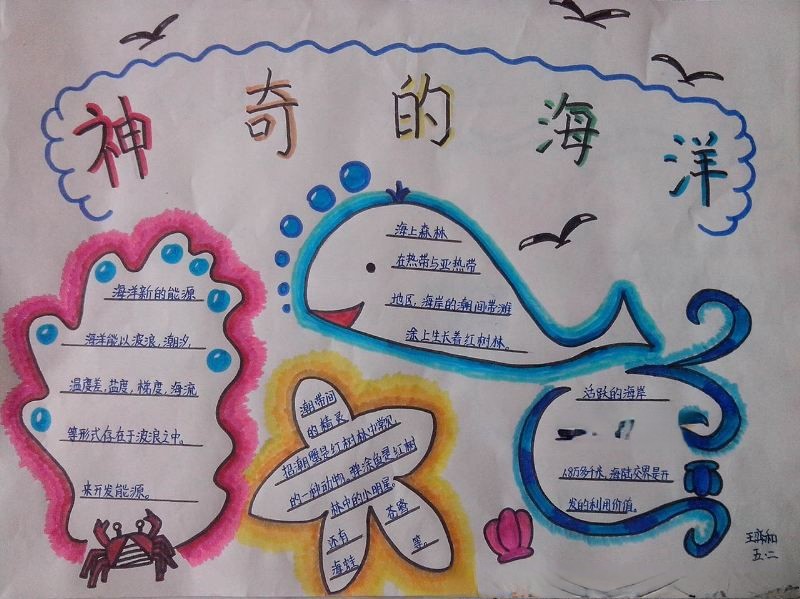 神奇的海洋
海洋新的能源
海洋能以波浪,潮汐,
温度差,盐度,梯度,海流
等形式存在于波浪之中。
来开发能源。
海上森林
在热带与亚热带
地区,海岸的潮间带滩
涂上生长着红树林。
潮带间
的精灵
招潮蟹是红树林中常见
的一种动物,弹涂鱼是红树
林中的小明星。
还有
海蛙
苍鹭
等。
活跃的海岸
1.8万多千米,海陆交界是开
发的利用价值。
五.二